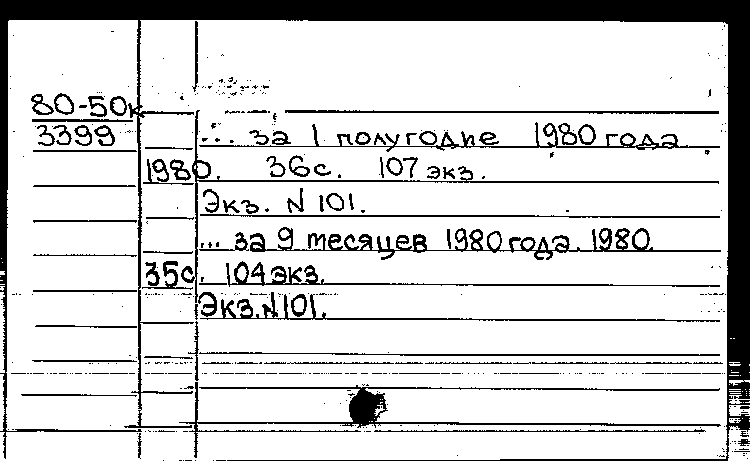 80-50к
3399
... за 1 полугодие 1980 года
1980. 36с. 107 экз.
Экз. N 101.
... за 9 месяцев 1980 года. 1980.
35с. 104 экз.
Экз. N 101.